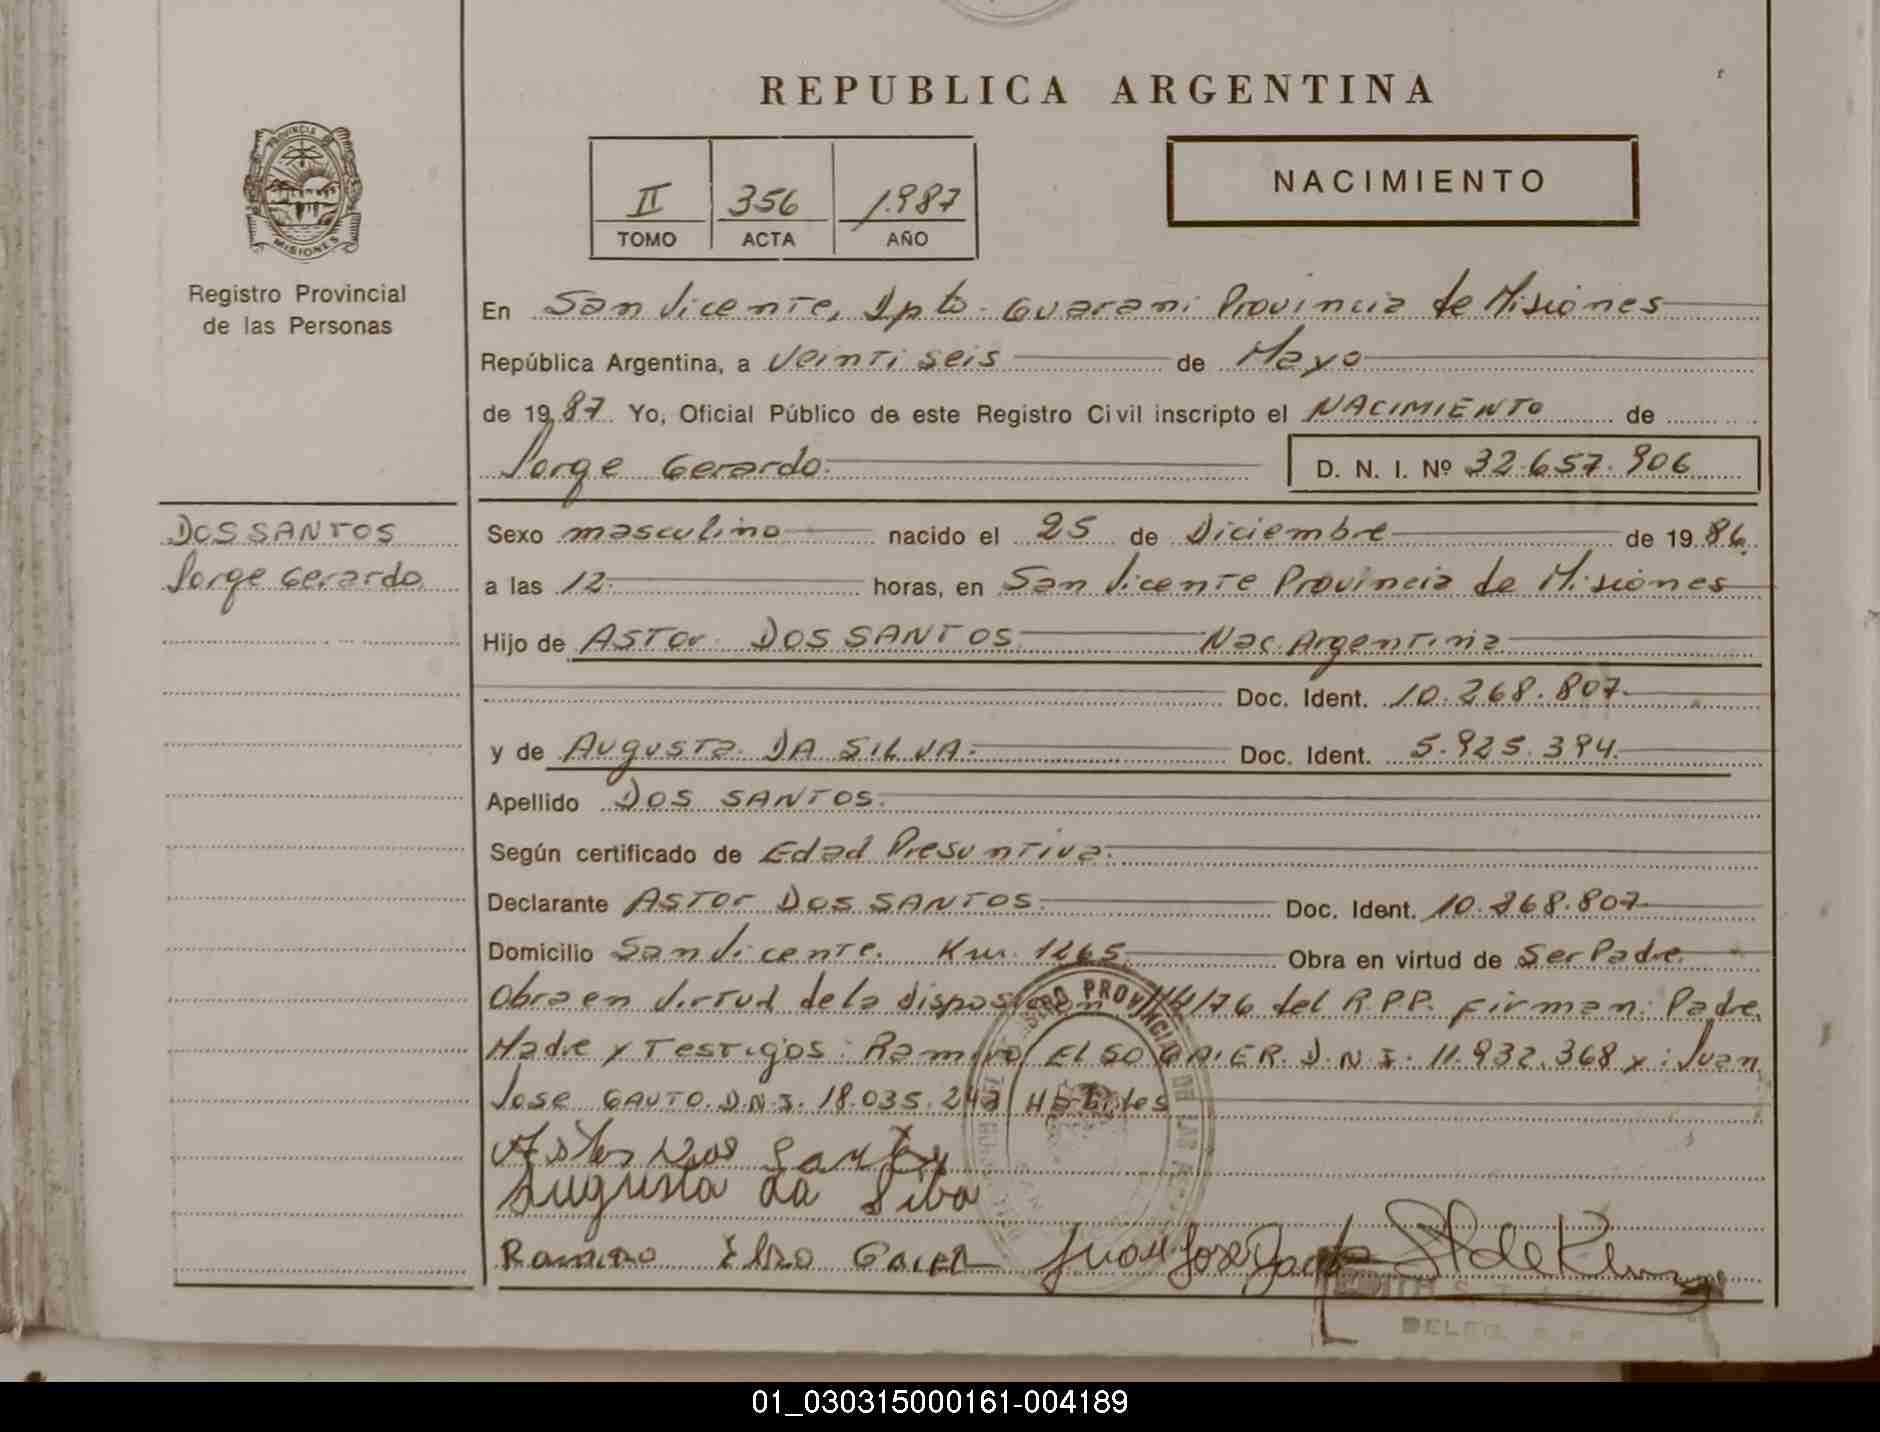 REPUBLICA ARGENTINA
PROVINCIA DE
MISIONES
Registro Provincial
de las Personas
II 356 1.987
TOMO ACTA AÑO
NACIMIENTO
En San Vicente, Dpto. Guarani Provincia de Misiones
República Argentina, a Veinti seis de Mayo
de 1987. Yo, Oficial Público de este Registro Civil inscripto el NACIMIENTO de
Jorge Gerardo. D. N. I. Nº 32.657.906
DOS SANTOS
Jorge Gerardo
Sexo masculino nacido el 25 de Diciembre de 1986.
a las 12. horas, en San Vicente Provincia de Misiones
Hijo de ASTOR DOS SANTOS. Nac. Argentina
Doc. Ident. 10.268.807.
y de Augusta DA SILVA. Doc. Ident. 5.925.394.
Apellido DOS SANTOS.
Según certificado de Edad Presuntiva.
Declarante ASTOR DOS SANTOS. Doc. Ident. 10.268.807
Domicilio San Vicente. Km. 1265. Obra en virtud de Ser Padre
Obra en Virtud de la disposicion 114/76 del R.P.P. Firman: Padre,
Madre y Testigos: Ramiro ELSO GAIER. D.N.I. 11.932.368 y: Juan
Jose GAUTO. D.N.I. 18.035.242 Habiles
Astor Dos Santos
Augusta da Silva
Ramiro Elso Gaier Juan Jose Gauto
01_030315000161-004189